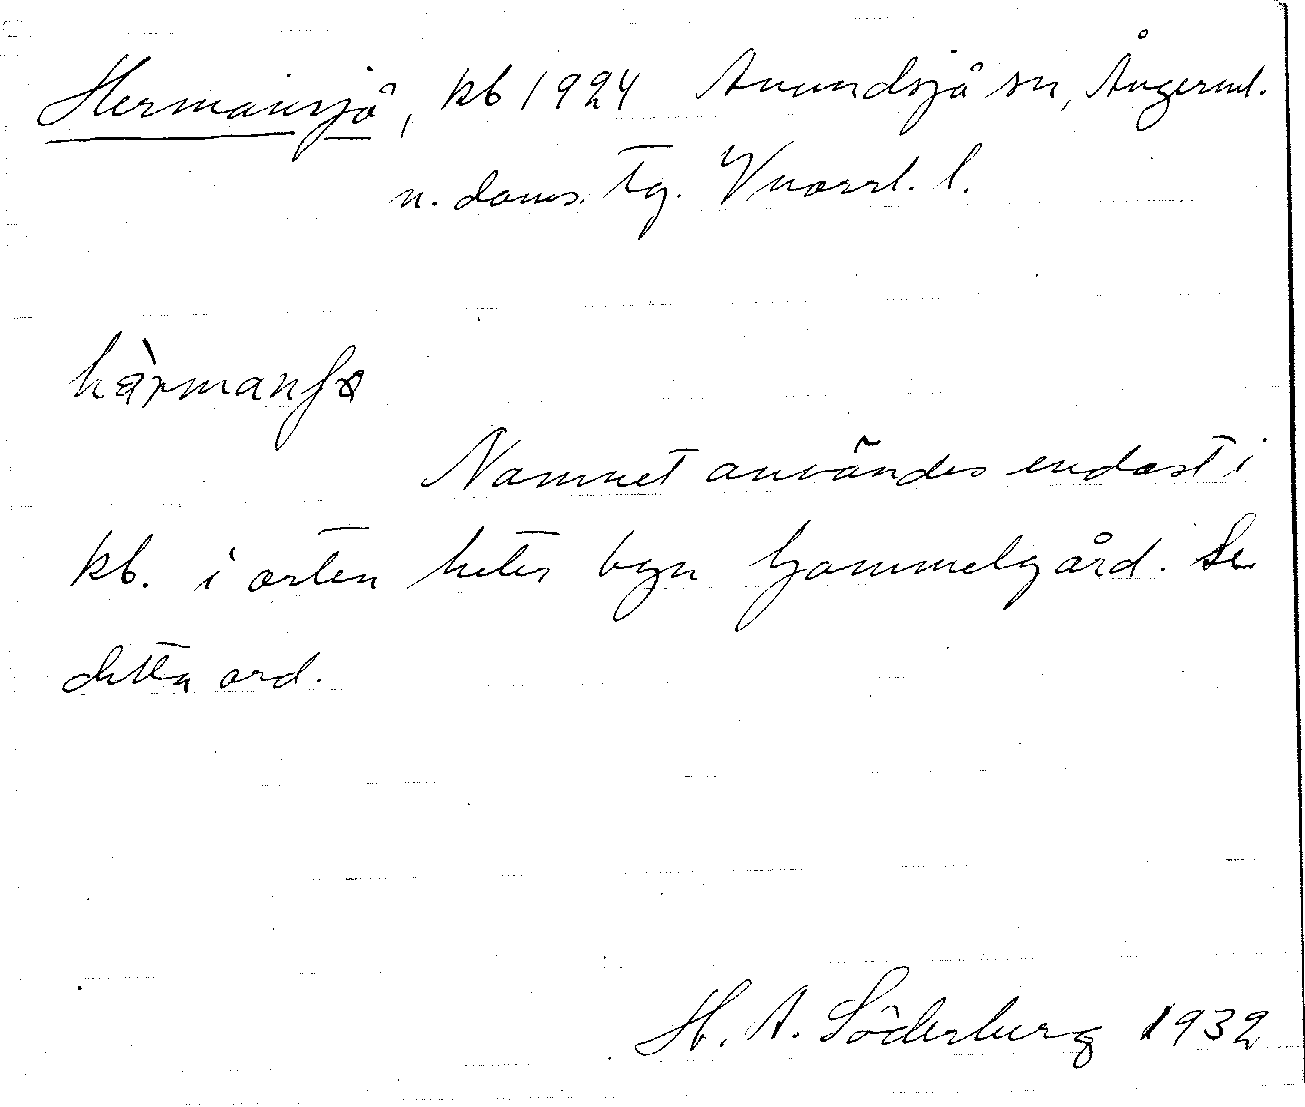 Hermansjö, kb 1924 Anundsjö sn, Ångerml.
n. doms. tg. Vnorrl. l.
hàrmanʃø
Namnet användes endast i
kb. i orten heter byn Gammelgård. Se
detta ord.
H. A. Söderberg 1932